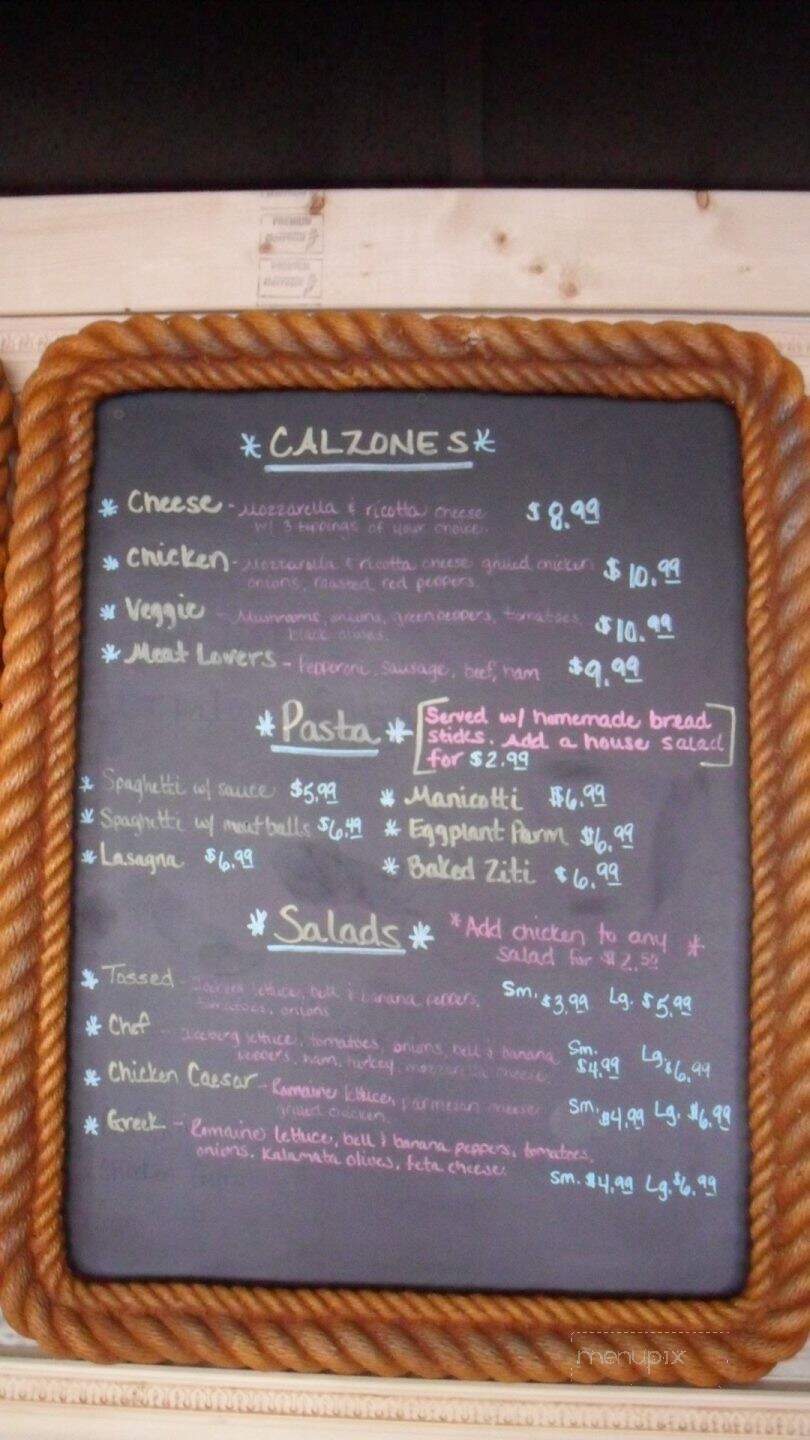 PREMIUM
*CALZONES*
* Cheese - Mozzarella & ricotta cheese $8.99
w/ 3 toppings of your choice.
* Chicken - Mozzarella & ricotta cheese grilled chicken $10.99
onions, roasted red peppers.
* Veggie - Mushrooms, onions, green peppers, tomatoes, $10.99
black olives.
* Meat Lovers - Pepperoni, sausage, beef, ham $9.99
* Pasta * [Served w/ homemade bread
sticks. Add a house salad
for $2.99]
* Spaghetti w/ sauce $5.99
* Spaghetti w/ meatballs $6.49
* Lasagna $6.99
* Manicotti $6.99
* Eggplant Parm $6.99
* Baked Ziti $6.99
* Salads *
*Add chicken to any *
salad for $2.50
* Tossed - lettuce, bell & banana peppers, Sm. $3.99 Lg. $5.99
tomatoes, onions
* Chef - Iceberg lettuce, tomatoes, onions, bell & banana Sm. $4.99 Lg. $6.99
peppers, ham, turkey, mozzarella cheese.
* Chicken Caesar - Romaine lettuce, parmesan cheese Sm. $4.99 Lg. $6.99
grilled chicken.
* Greek - Romaine lettuce, bell & banana peppers, tomatoes,
onions, Kalamata olives, feta cheese.
Sm. $4.99 Lg. $6.99
menupix